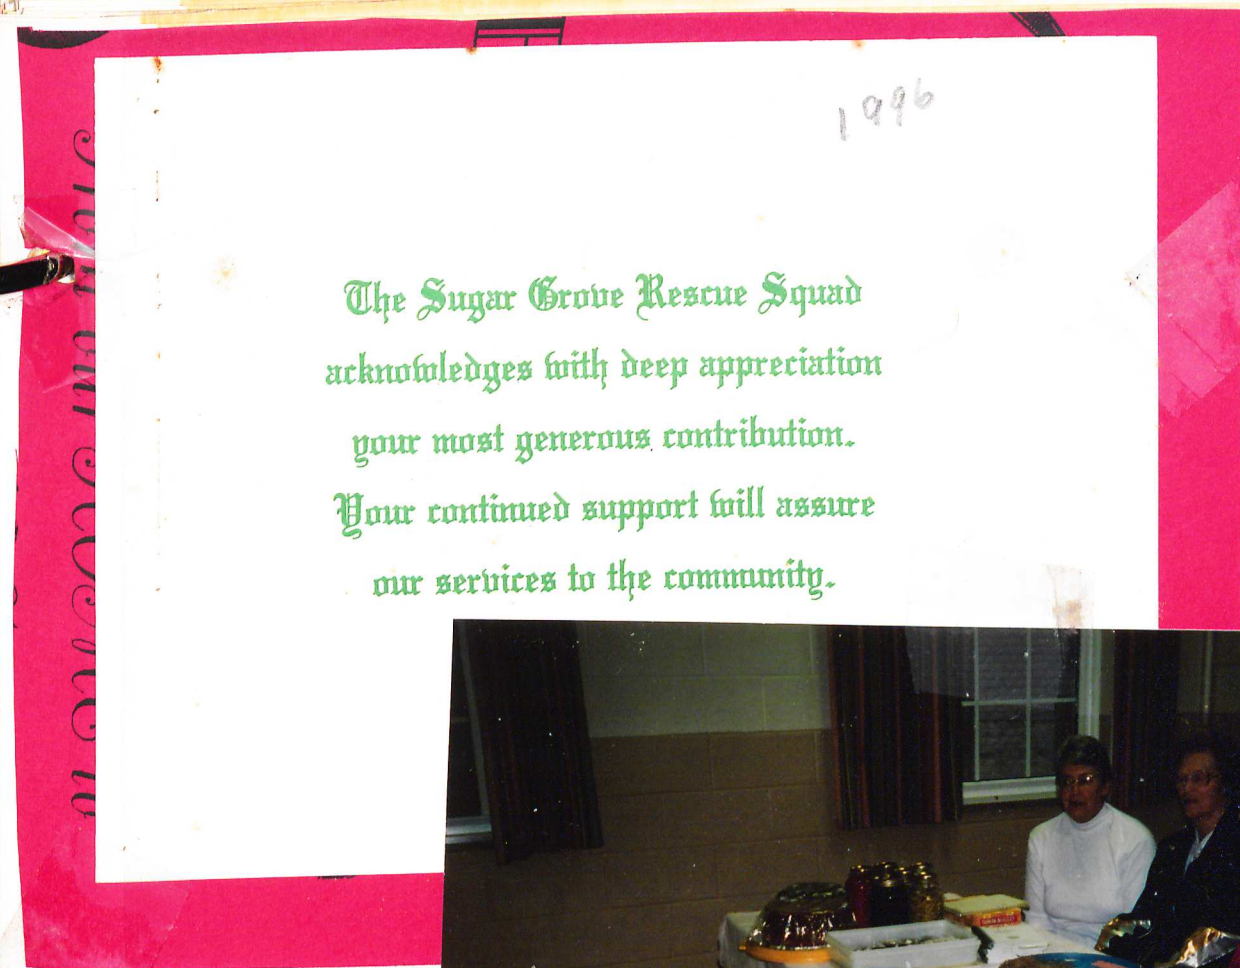 1996
The Sugar Grove Rescue Squad
acknowledges with deep appreciation
your most generous contribution.
Your continued support will assure
our services to the community.